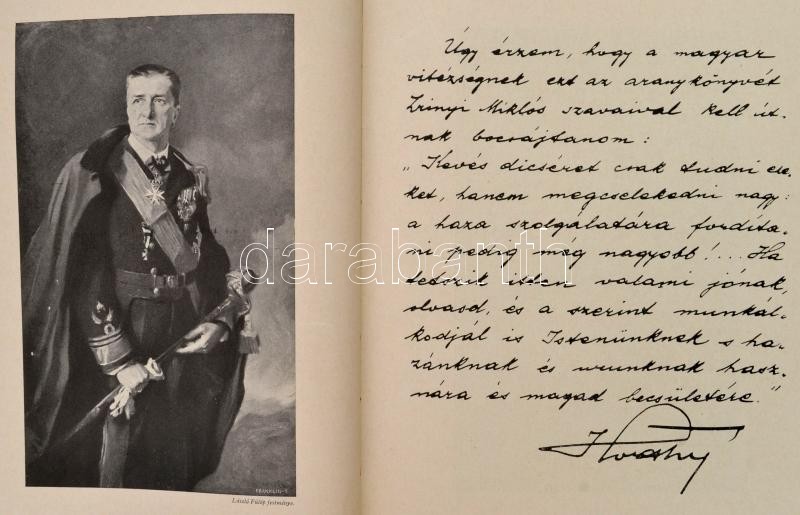 Úgy érzem, hogy a magyar
vitézségnek ezt az aranykönyvét
Zrinyi Miklós szavaival kell út-
nak bocsájtanom:
"Kevés dicséret csak tudni eze-
ket, hanem megcselekedni nagy:
a haza szolgálatára fordíta-
ni pedig még nagyobb!... Ha
tetszik itten valami jónak,
olvasd, és a szerint munkál-
kodjál is Istenünknek s ha-
zánknak és urunknak hasz-
nára és magad becsületére."
Horthy
FRANKLIN-T.
László Fülöp festménye.
darabanth